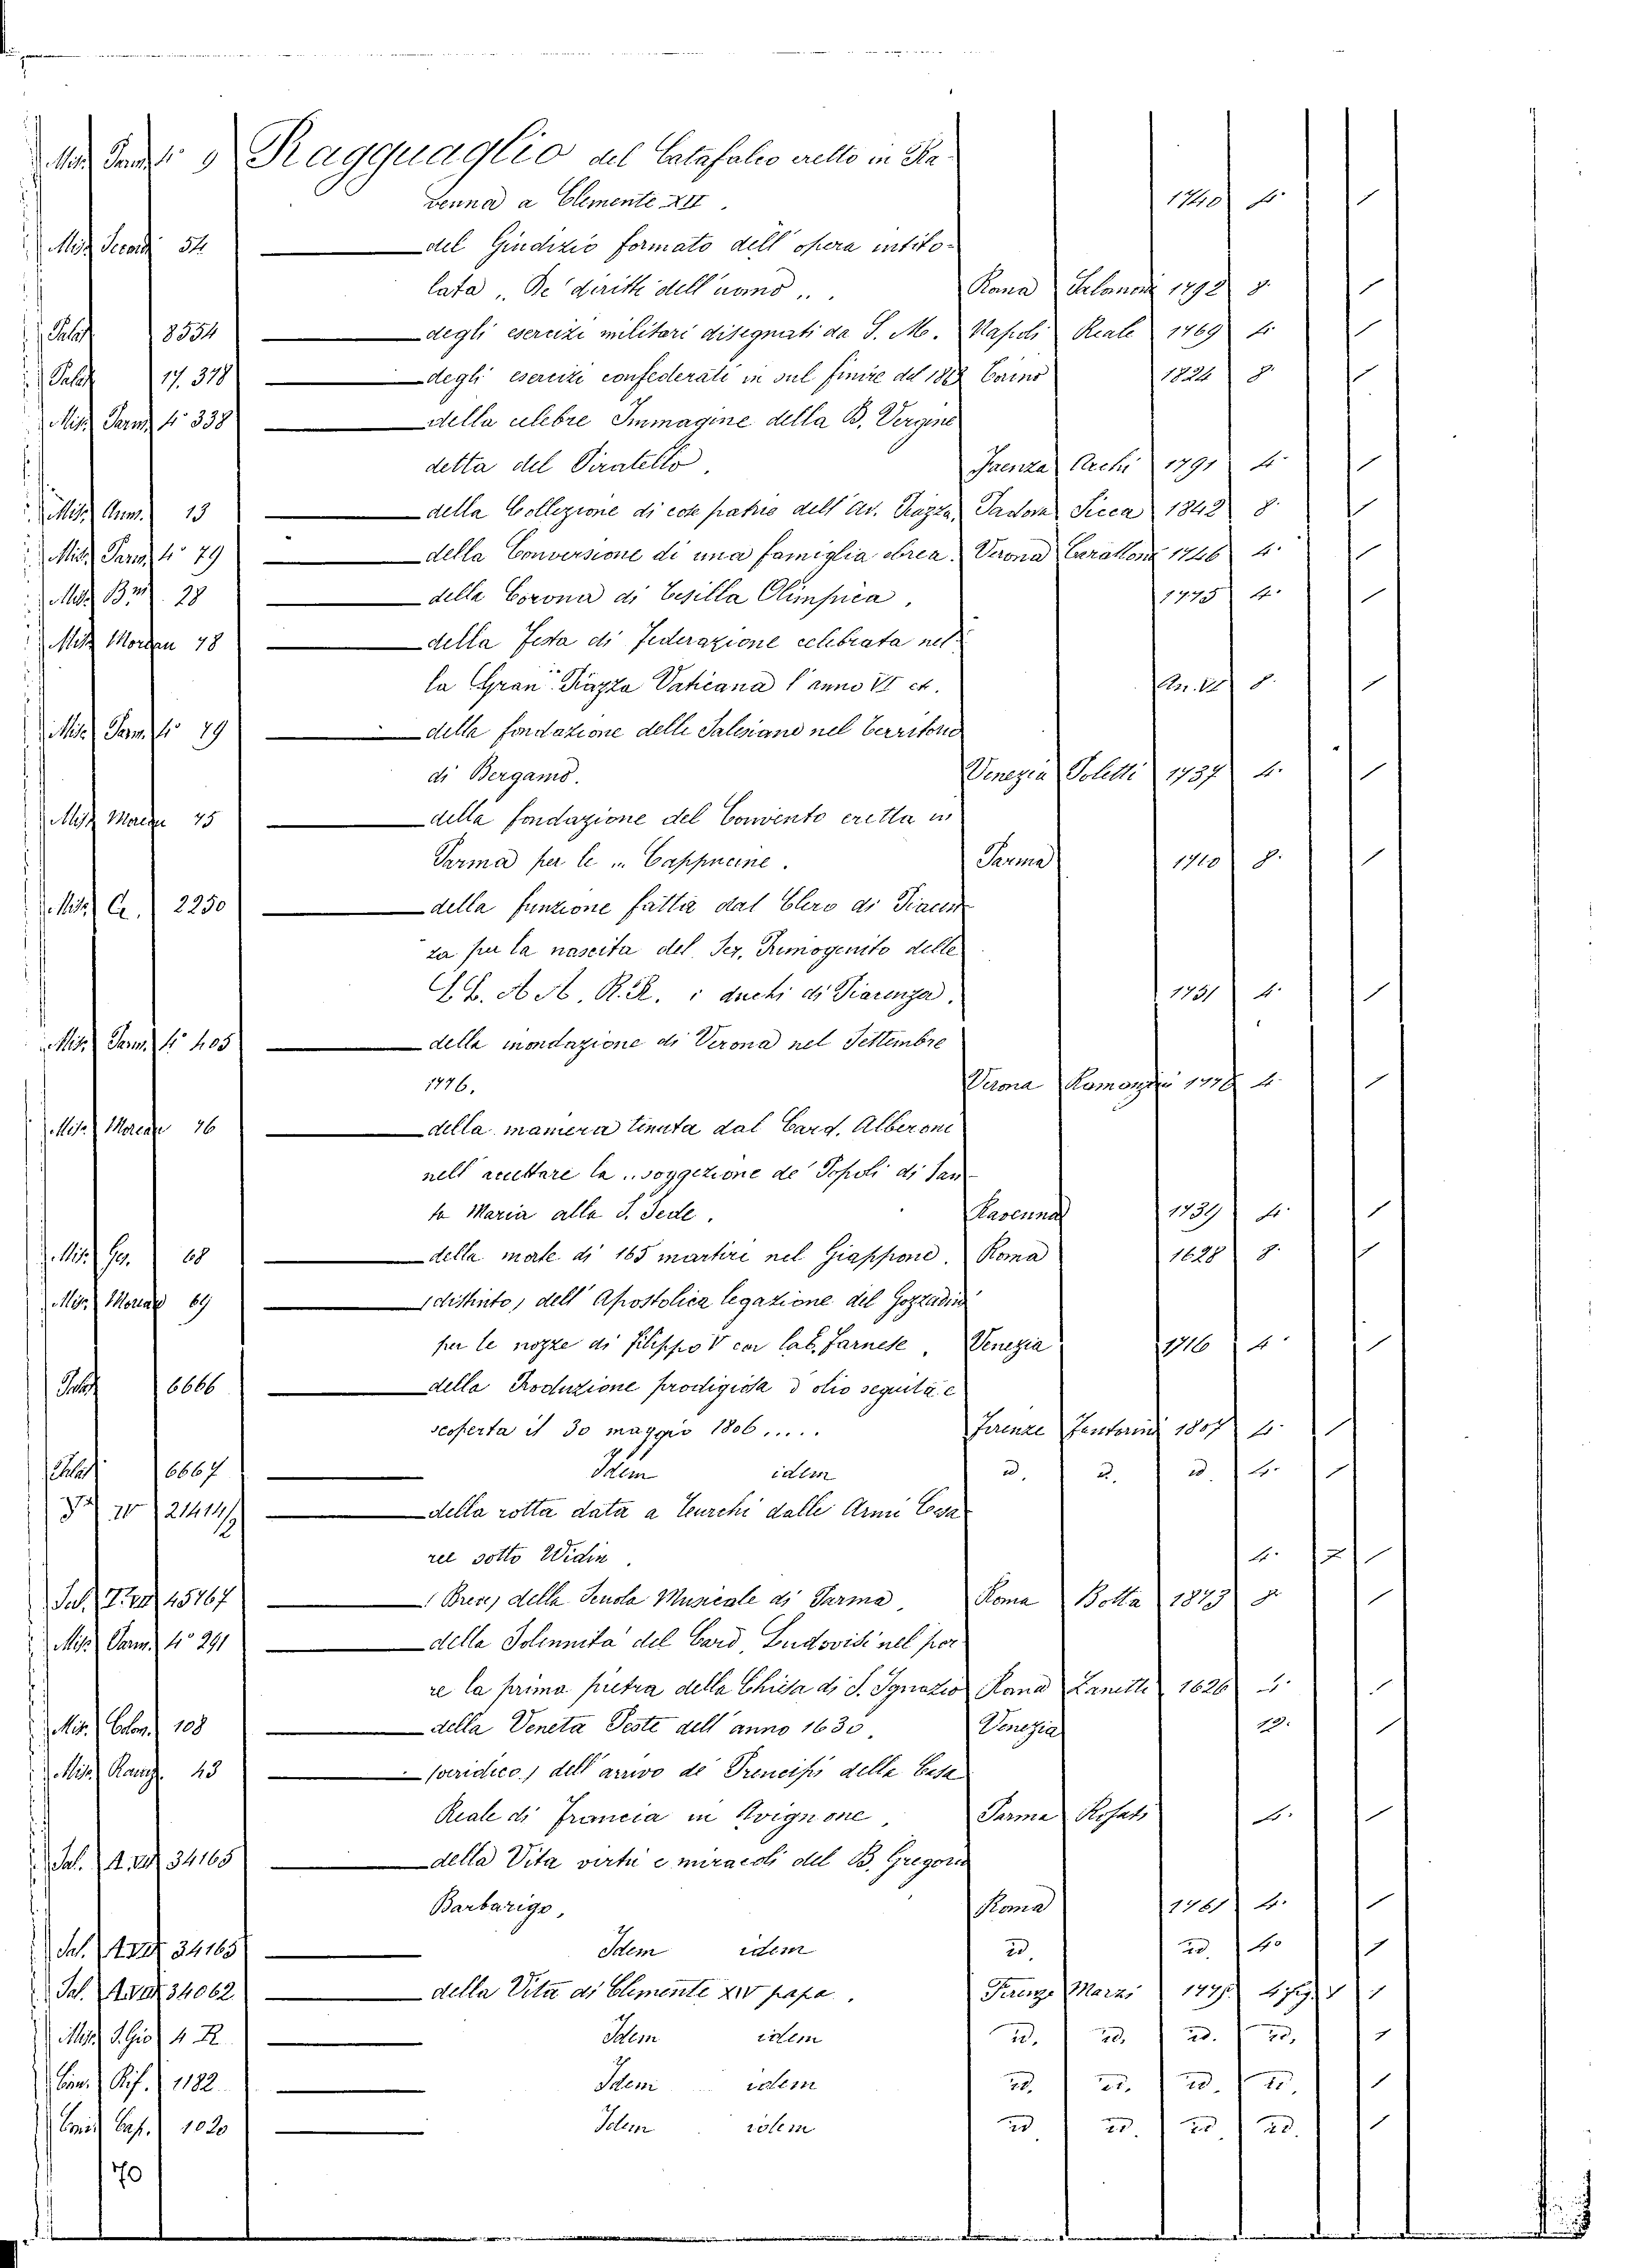 Misc. Parm. 4° 9 Ragguaglio del Catafalco eretto in Ra-
venna a Clemente XII. 1740 4. 1
Misc. Second 54 — del Giudizio formato dell' opera intito-
lata „De' diritti dell' uomo„. Roma Salomoni 1792 8. 1
Palat. 8554 — degli esercizi militari disegnati da S. M. Napoli Reale 1769 4. 1
Palat. 17.378 — degli esercizi confederati in sul finire del 1823 Torino 1824 8. 1
Misc. Parm. 4° 338 — della celebre Immagine della B. Vergine
detta del Piratello. Faenza Archi 1791 4. 1
Misc. Amm. 13 — della Collezione di cose patrie dell' Av. Piazza, Padova Sicca 1842 8. 1
Misc. Parm. 4° 79 — della Conversione di una famiglia ebrea. Verona Carattoni 1746 4. 1
Misc. B.m. 28 — della Corona di Corilla Olimpica. 1775 4. 1
Misc. Moreau 78 — della Festa di Federazione celebrata nel-
la Gran Piazza Vaticana l'anno VI ec. An. VI 8. 1
Misc. Parm. 4° 79 — della fondazione delle Salesiane nel territorio
di Bergamo. Venezia Poletti 1737 4. 1
Misc. Moreau 75 — della fondazione del Convento eretto in
Parma per le ... Cappucine. Parma 1710 8. 1
Misc. C. 2250 — della funzione fatta dal Clero di Piacen-
za per la nascita del Ser. Primogenito delle
LL. AA. R.R. i duchi di Piacenza. 1751 4. 1
Misc. Parm. 4° 405 — della inondazione di Verona nel Settembre
1776. Verona Ramanzini 1778 4. 1
Misc. Moreau 76 — della maniera tenuta dal Card. Alberoni
nell' accettare la .. soggezione de' Popoli di San-
ta Maria alla S. Sede. Ravenna 1739 4. 1
Misc. Ges. 68 — della morte di 165 martiri nel Giappone. Roma 1628 8. 1
Misc. Moreau 69 — (distinto) dell' Apostolica legazione del Gozzadini
per le nozze di Filippo V con la E. Farnese. Venezia 1716 4. 1
Palat. 6666 — della Produzione prodigiosa d'olio seguita e
scoperta il 30 maggio 1806..... Firenze Fantosini 1807 4. 1
Palat. 6667 — Idem idem id. id. id. 4. 1
21414/2 — della rotta data a Turchi dalle Armi Cesa-
ree sotto Widin. 4. 1
Sal. 45767 — (Breve) della Scuola Musicale di Parma. Roma Botta 1873 8. 1
Misc. Parm. 4° 291 — della Solennità del Card. Ludovisi nel por-
re la prima pietra della Chiesa di S. Ignazio Roma Zanetti 1626 4. 1
Misc. Colom. 108 — della Veneta Peste dell' anno 1630. Venezia 12. 1
Misc. Rang. 43 — (veridico) dell' arrivo de' Prencipi della Casa
Reale di Francia in Avignone. Parma Rosati 4. 1
Sal. 34165 — della Vita virtù e miracoli del B. Gregorio
Barbarigo. Roma 1761 4. 1
Sal. 34165 — Idem idem id. id. 4° 1
Sal. 34062 — della Vita di Clemente XIV papa. Firenze Marzi 1775 4 fig. 1
Misc. S. Gio. 4 R — Idem idem id. id. id. id. 1
Conv. Rif. 1182 — Idem idem id. id. id. id. 1
Conv. Cap. 1020 — Idem idem id. id. id. id. 1
70